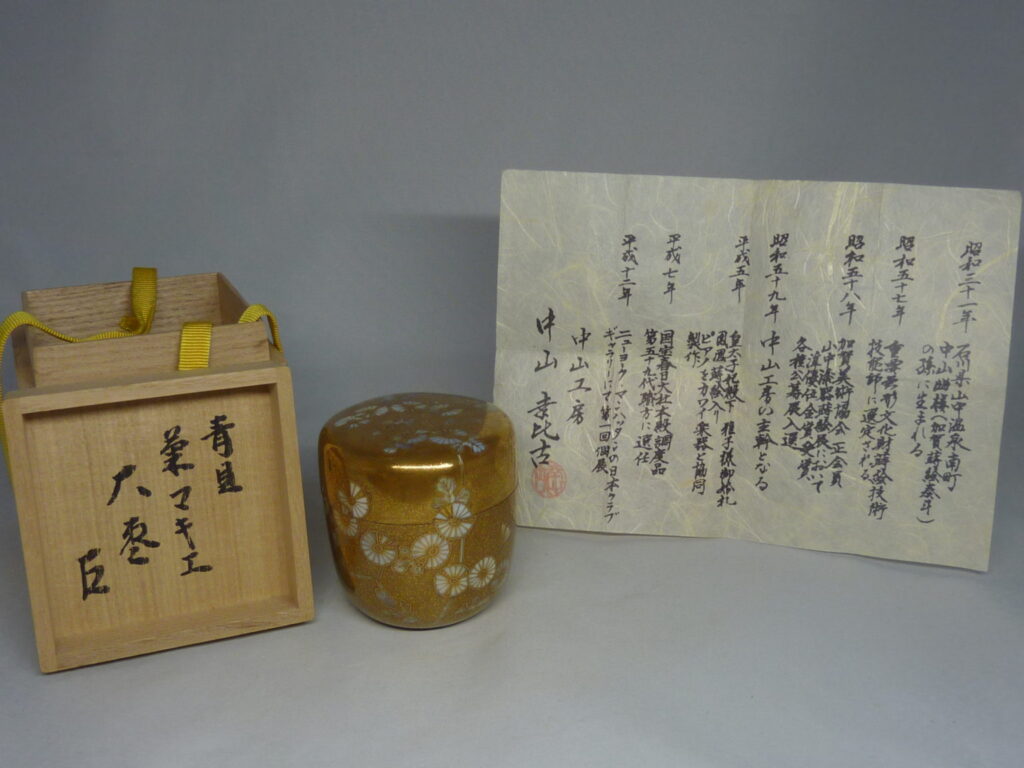 青貝
菊マキエ
大棗
昭和三十一年
石川県山中温泉南町
中山
の孫に生まれる
昭和五十七年
重要無形文化財蒔絵技術
技能師に選定される
昭和五十八年
加賀美術協会正会員
山中漆器蒔絵展において
優佳作金賞受賞
各種公募展入選
昭和五十九年 中山工房の主幹となる
平成五年
皇太子殿下 雅子様御成婚
鳳凰蒔絵入り
ピアノをカワイ楽器と協同
製作
平成七年
国宝春日大社本殿調度品
第五十九代職方に選任
平成十二年
ニューヨーク、マンハッタンの日本クラブ
ギャラリーにて第一回個展
中山工房
中山